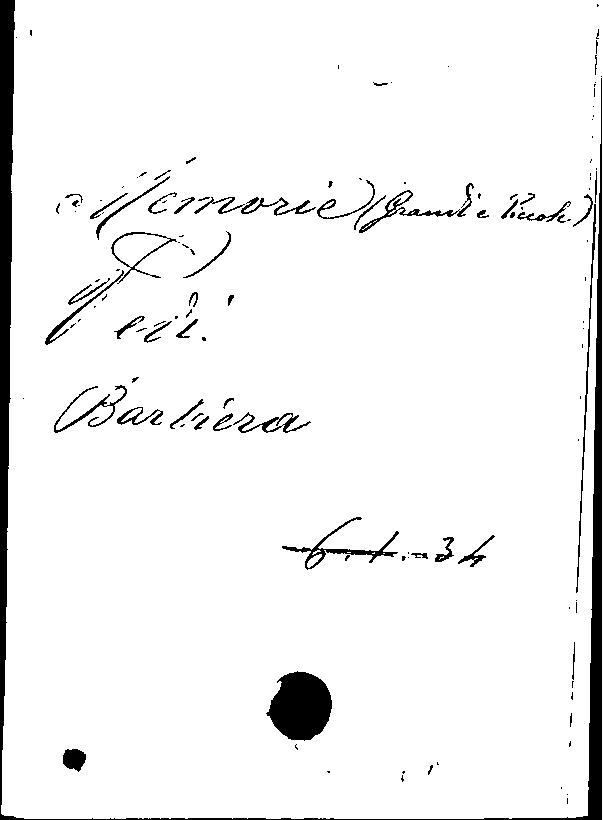 Memorie (Grandi e Piccole)
Vedi
Barbiera
6.1.-34